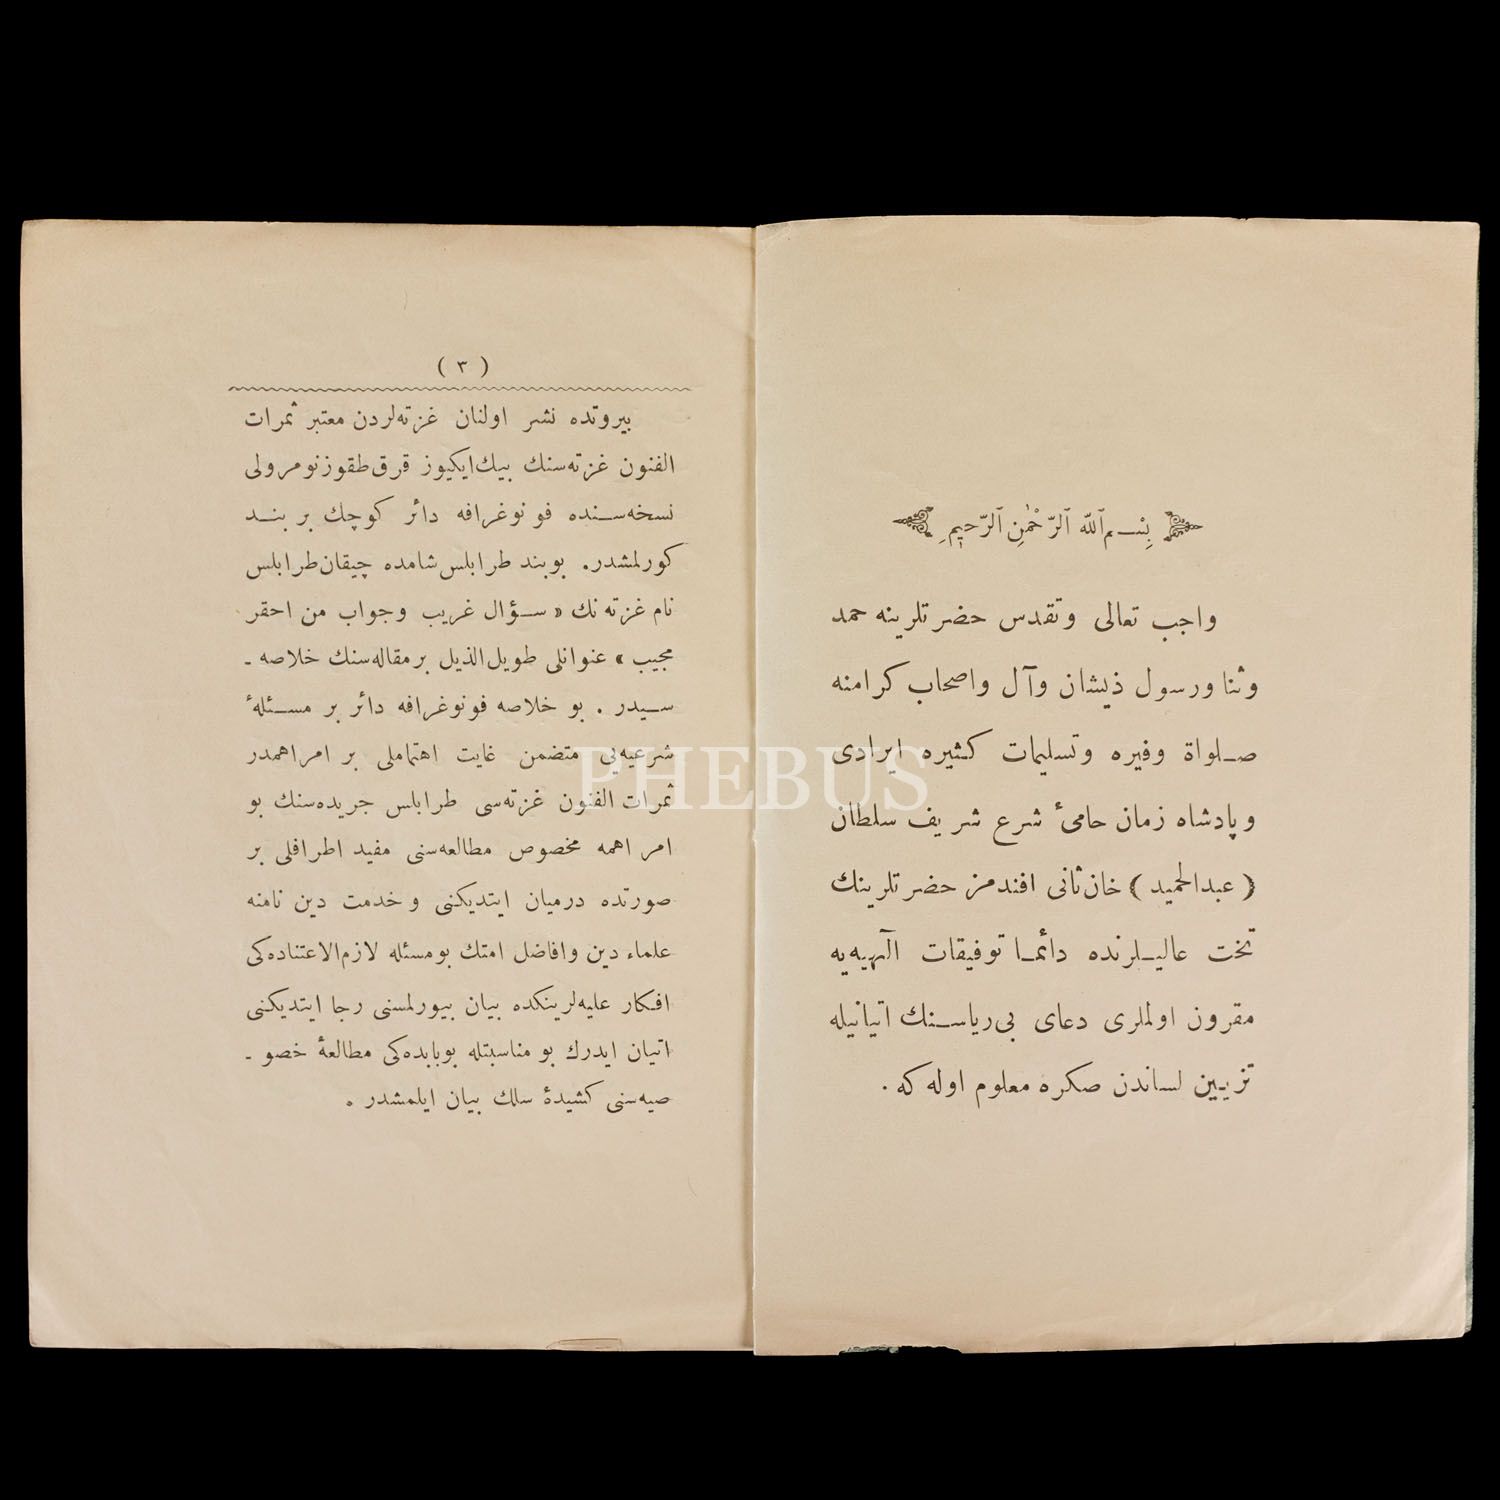 بسم الله الرحمن الرحيم
واجب تعالی وتقدس حضرتلرينه حمد
وثنا ورسول ذيشان وآل واصحاب كرامنه
صلواة وفيره وتسليمات كثيره ايرادی
وپادشاه زمان حامیٔ شرع شريف سلطان
( عبدالحميد ) خان ثانی افندمز حضرتلرينك
تخت عاليلرنده دائما توفيقات الٓهيه‌يه
مقرون اولملری دعای بی‌رياسنك اتيانيله
تزيين لساندن صكره معلوم اوله كه .
( ٣ )
بيروتده نشر اولنان غزته‌لردن معتبر ثمرات
الفنون غزته‌سنك بيك‌ايكيوز قرق‌طقوزنومرولی
نسخه‌سنده فونوغرافه دائر كوچك بر بند
كورلمشدر . بوبند طرابلس شامده چيقان‌طرابلس
نام غزته نك « سؤال غريب وجواب من احقر
مجيب » عنوانلی طويل‌الذيل برمقاله‌سنك خلاصه ـ
سيدر . بو خلاصه فونوغرافه دائر بر مسئلهٔ
شرعيه‌يی متضمن غايت اهتماملی بر امراهمدر
ثمرات الفنون غزته‌سی طرابلس جريده‌سنك بو
امر اهمه مخصوص مطالعه‌سنی مفيد اطرافلی بر
صورتده درميان ايتديكنی وخدمت دين نامنه
علماء دين وافاضل امتك بومسئله لازم‌الاعتناده‌كی
افكار عليه‌لرينكده بيان بيورلمسنی رجا ايتديكنی
اتيان ايدرك بو مناسبتله بوبابده‌كی مطالعهٔ خصو ـ
صيه‌سنی كشيدهٔ سلك بيان ايلمشدر .
PHEBUS